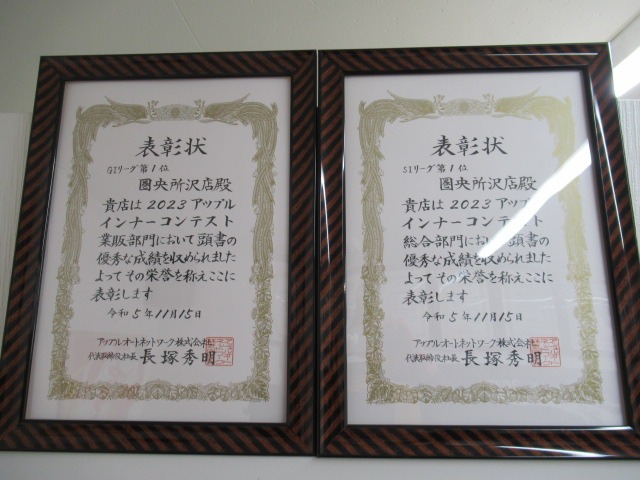 表彰状
G1リーグ第1位
圏央所沢店殿
貴店は2023アップル
インナーコンテスト
業販部門において頭書の
優秀な成績を収められました
よってその栄誉を称えここに
表彰します
令和5年11月15日
アップルオートネットワーク株式会社
代表取締役社長 長塚秀明
表彰状
S1リーグ第1位
圏央所沢店殿
貴店は2023アップル
インナーコンテスト
総合部門において頭書の
優秀な成績を収められました
よってその栄誉を称えここに
表彰します
令和5年11月15日
アップルオートネットワーク株式会社
代表取締役社長 長塚秀明